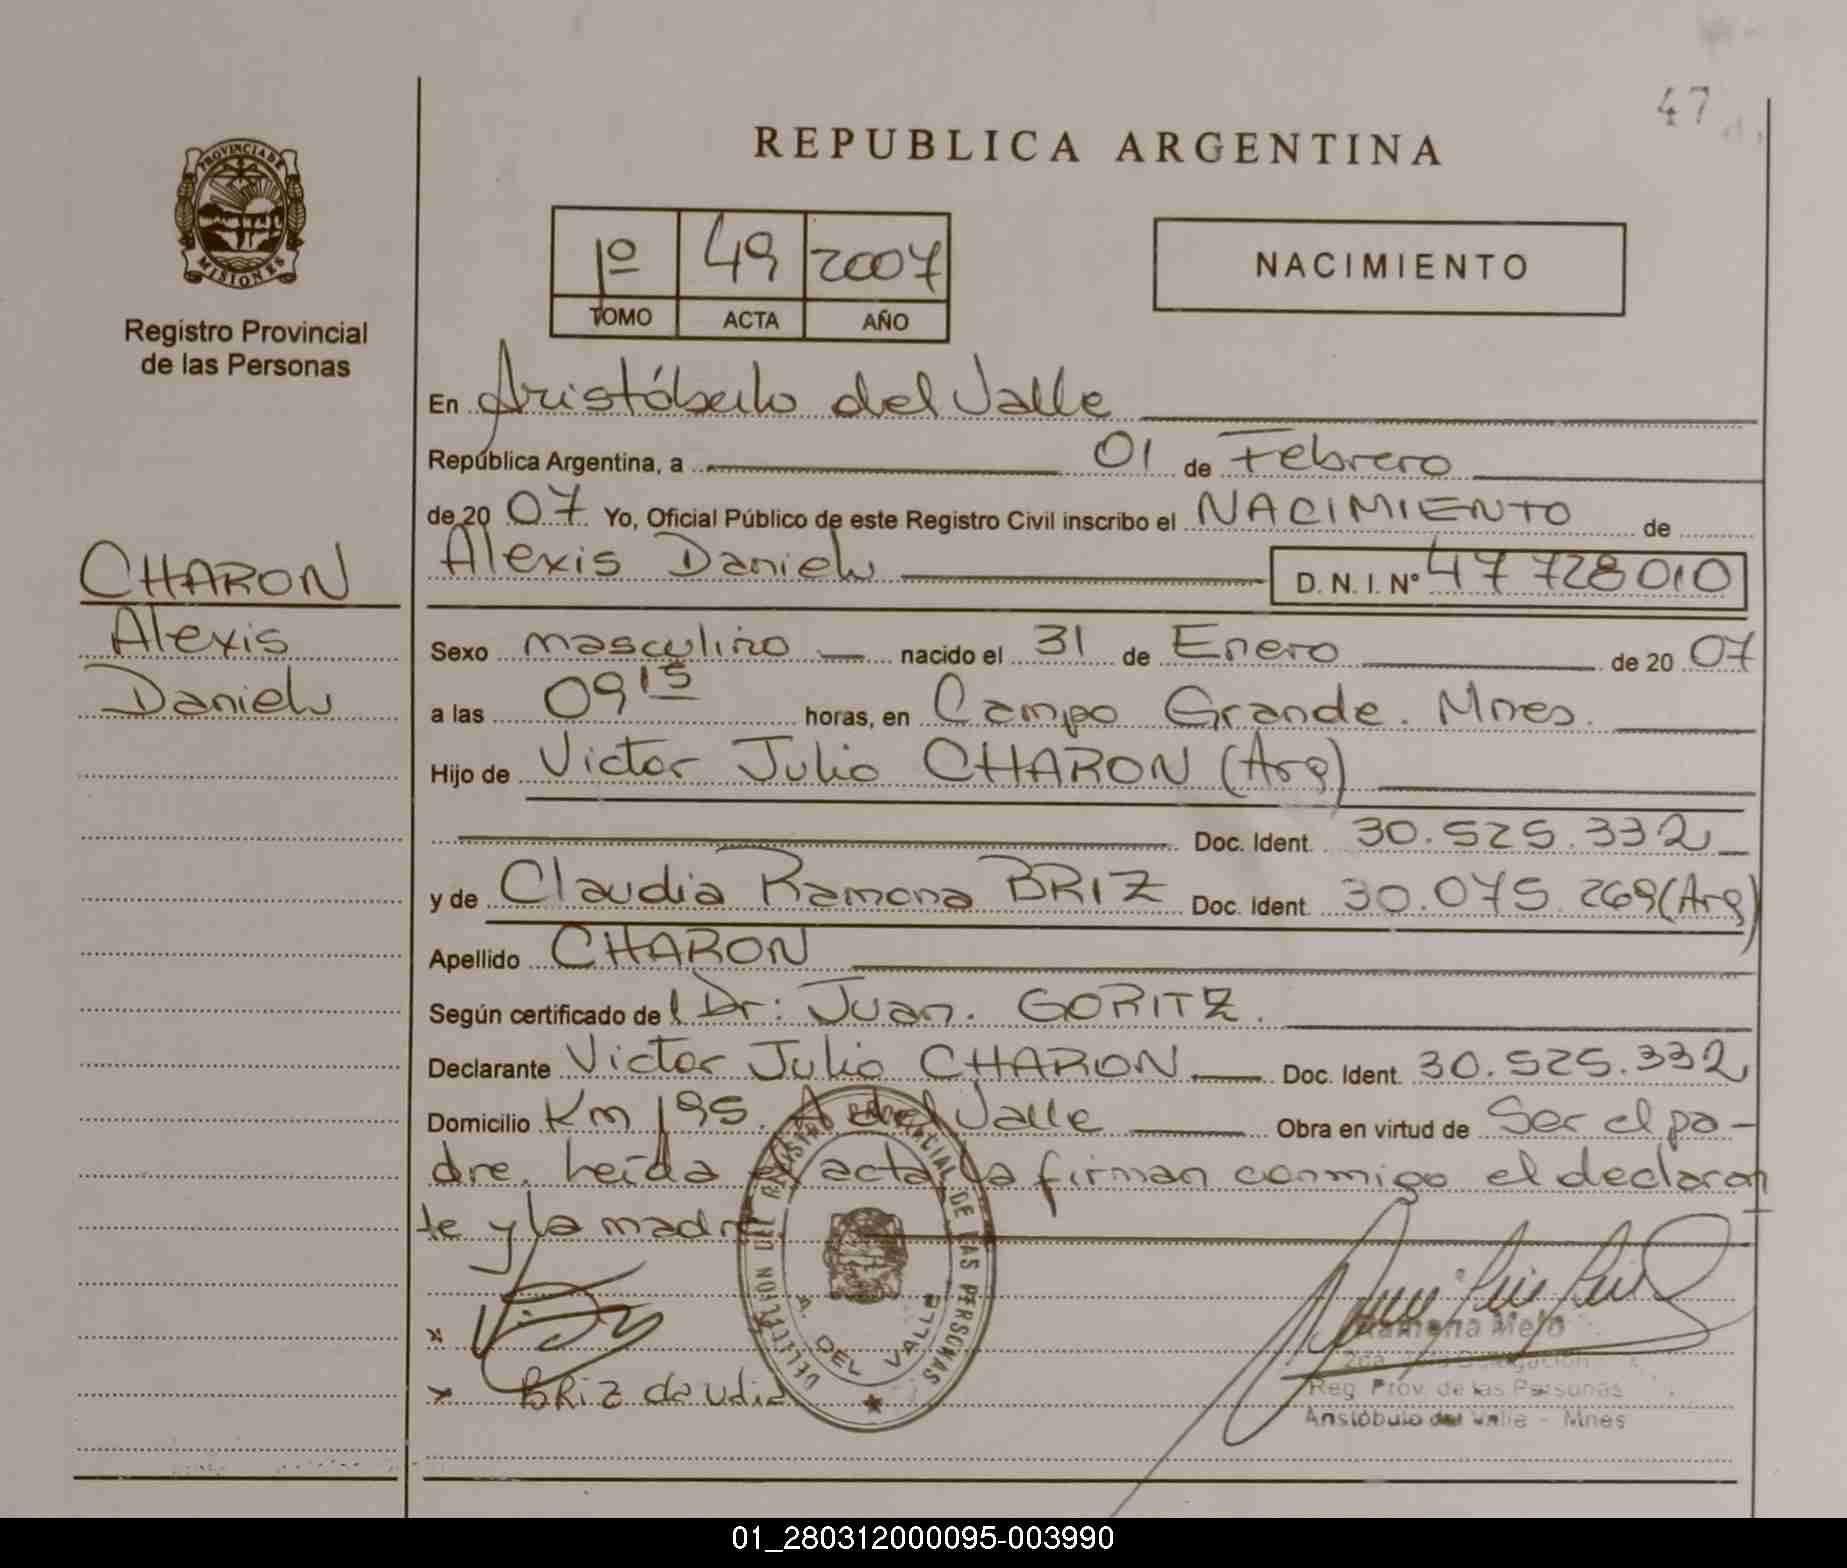 47
REPUBLICA ARGENTINA
PROVINCIA DE
MISIONES
Registro Provincial
de las Personas
1º 49 2007
TOMO ACTA AÑO
NACIMIENTO
En Aristóbulo del Valle
República Argentina, a 01 de Febrero
de 20 07 Yo, Oficial Público de este Registro Civil inscribo el NACIMIENTO de
Alexis Daniel D. N. I. Nº 47 728010
CHARON
Alexis
Daniel
Sexo masculino nacido el 31 de Enero de 20 07
a las 09 15 horas, en Campo Grande. Mnes.
Hijo de Victor Julio CHARON (Arg)
Doc. Ident. 30.525.332
y de Claudia Ramona BRIZ Doc. Ident. 30.075.269 (Arg)
Apellido CHARON
Según certificado del Dr: Juan. GORITZ.
Declarante Victor Julio CHARON Doc. Ident. 30.525.332
Domicilio Km 195. A del Valle Obra en virtud de Ser el pa-
dre. Leída el acta, la firman conmigo el declaran
te y la madre
DELEGACION DEL REGISTRO PROVINCIAL DE LAS PERSONAS
A. DEL VALLE
x
x BRIZ claudia
Ramona Melo
Delegación
Reg. Prov. de las Personas
Aristóbulo del Valle - Mnes
01_280312000095-003990